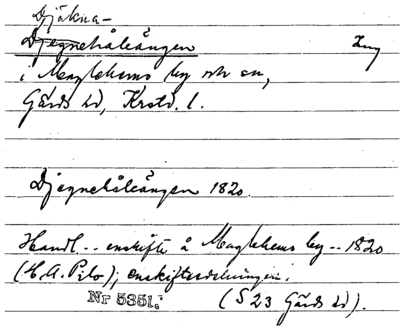 Djäkna-
Djegnehålsängen Äng
i Maglehems by och sn,
Gärds hd, Krstd. l.
Djegnehålsängen 1820.
Handl. .. enskifte å Maglehems by .. 1820
(H. A. Pilo); enskiftesdelningen.
Nr 5351. (S 23 Gärds hd).